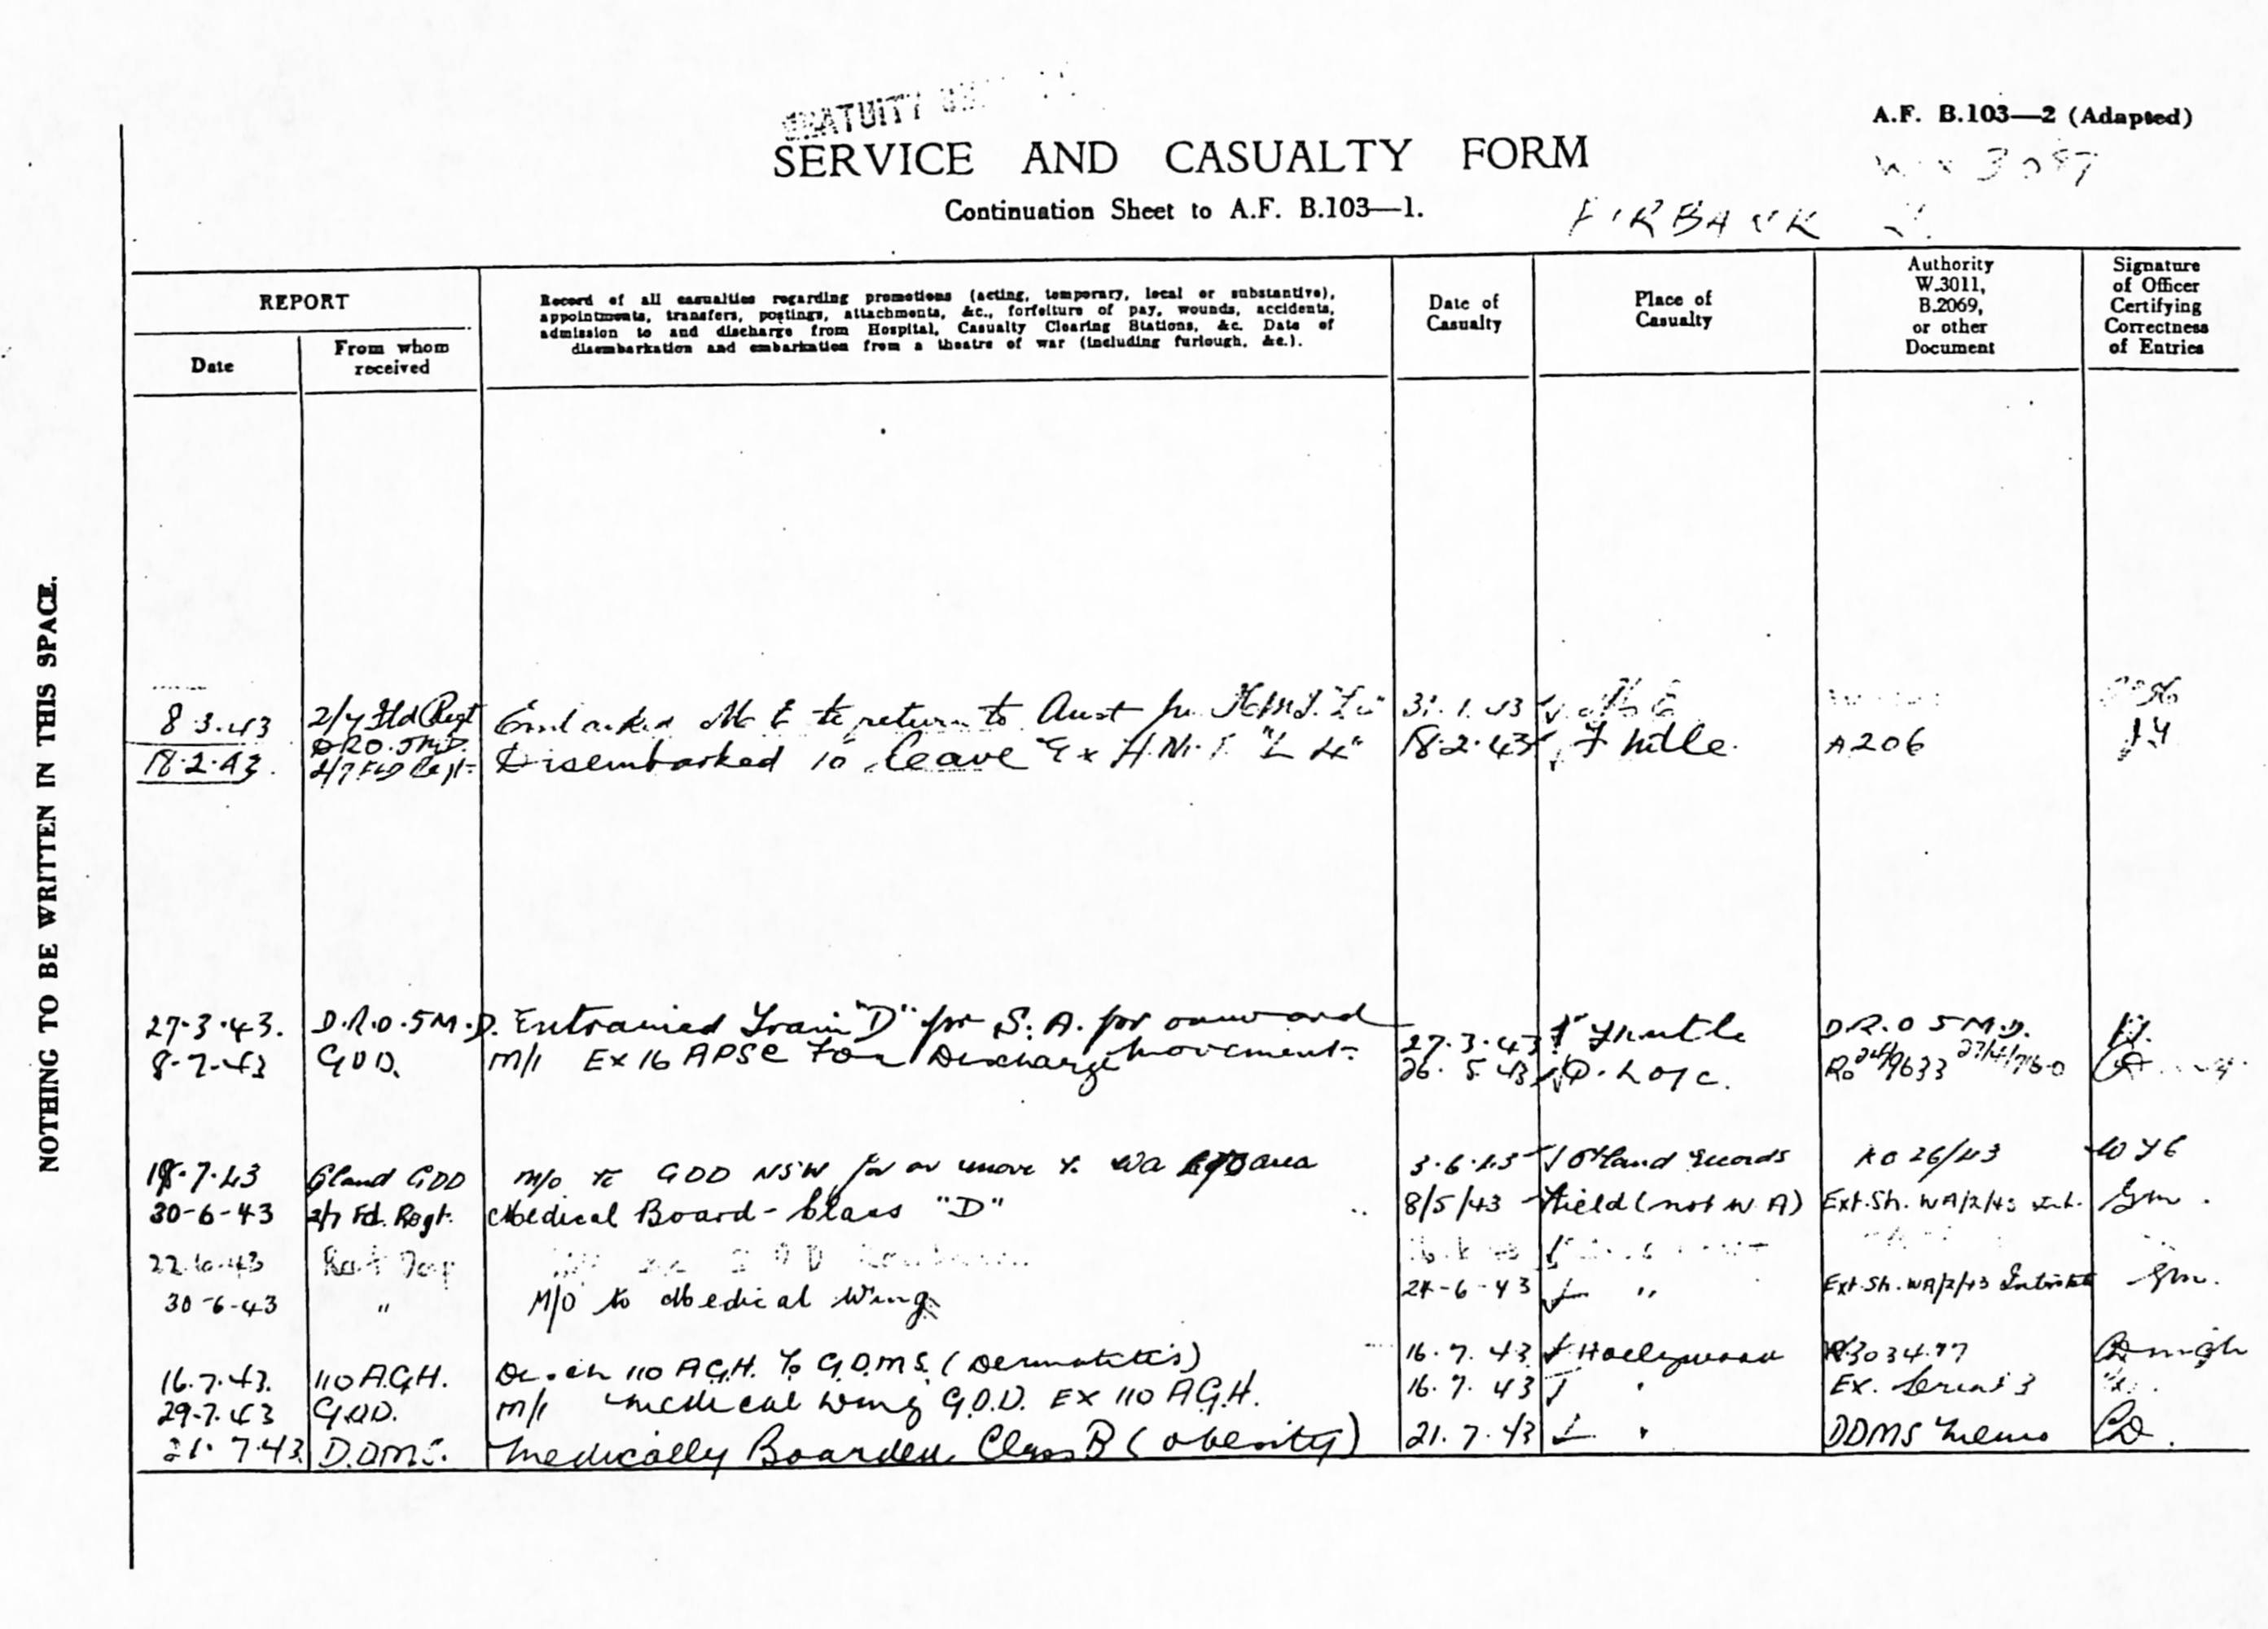 GRATUITY
A.F. B.103—2 (Adapted)
SERVICE AND CASUALTY FORM
Continuation Sheet to A.F. B.103—1.
FIRBANK
NOTHING TO BE WRITTEN IN THIS SPACE.
REPORT
Date
From whom received
Record of all casualties regarding promotions (acting, temporary, local or substantive),
appointments, transfers, postings, attachments, &c., forfeiture of pay, wounds, accidents,
admission to and discharge from Hospital, Casualty Clearing Stations, &c. Date of
disembarkation and embarkation from a theatre of war (including furlough, &c.).
Date of Casualty
Place of Casualty
Authority W.3011, B.2069, or other Document
Signature of Officer Certifying Correctness of Entries
8.3.43 2/7 Fld Regt Embarked M E to return to Aust 31.1.43
18.2.43. 2/7 Fld Regt. Disembarked to leave Ex 18.2.43 F'mtle. A206
27.3.43. D.R.O. 5 M.D. Entrained Train "D" for S.A. for onward movement. 27.3.43 F'mtle D.R.O 5 M.D.
8.7.43 GDD. M/I Ex 16 APSC For Discharge 26.5.43 Q. L of C.
18.7.43 Q'land GDD M/O to GDD NSW for on move to WA area 3.6.43 Q'land Records RO 26/43
30-6-43 2/7 Fd. Regt. Medical Board - Class "D" 8/5/43 Field (not W.A) Ext. Sh. WA/2/43
22.6.43
30-6-43 " M/O to Medical Wing 24-6-43 " Ext. Sh. WA/2/43
16.7.43. 110 A.G.H. 110 A.G.H. To G.D.M.S. (Dermatitis) 16.7.43 Hollywood
29.7.43 GDD. M/I Medical Wing G.D.D. Ex 110 A.G.H. 16.7.43 Ex. Serial 3
21.7.43 D.DMS. Medically Boarded Class B (obesity) 21.7.43 " DDMS Memo